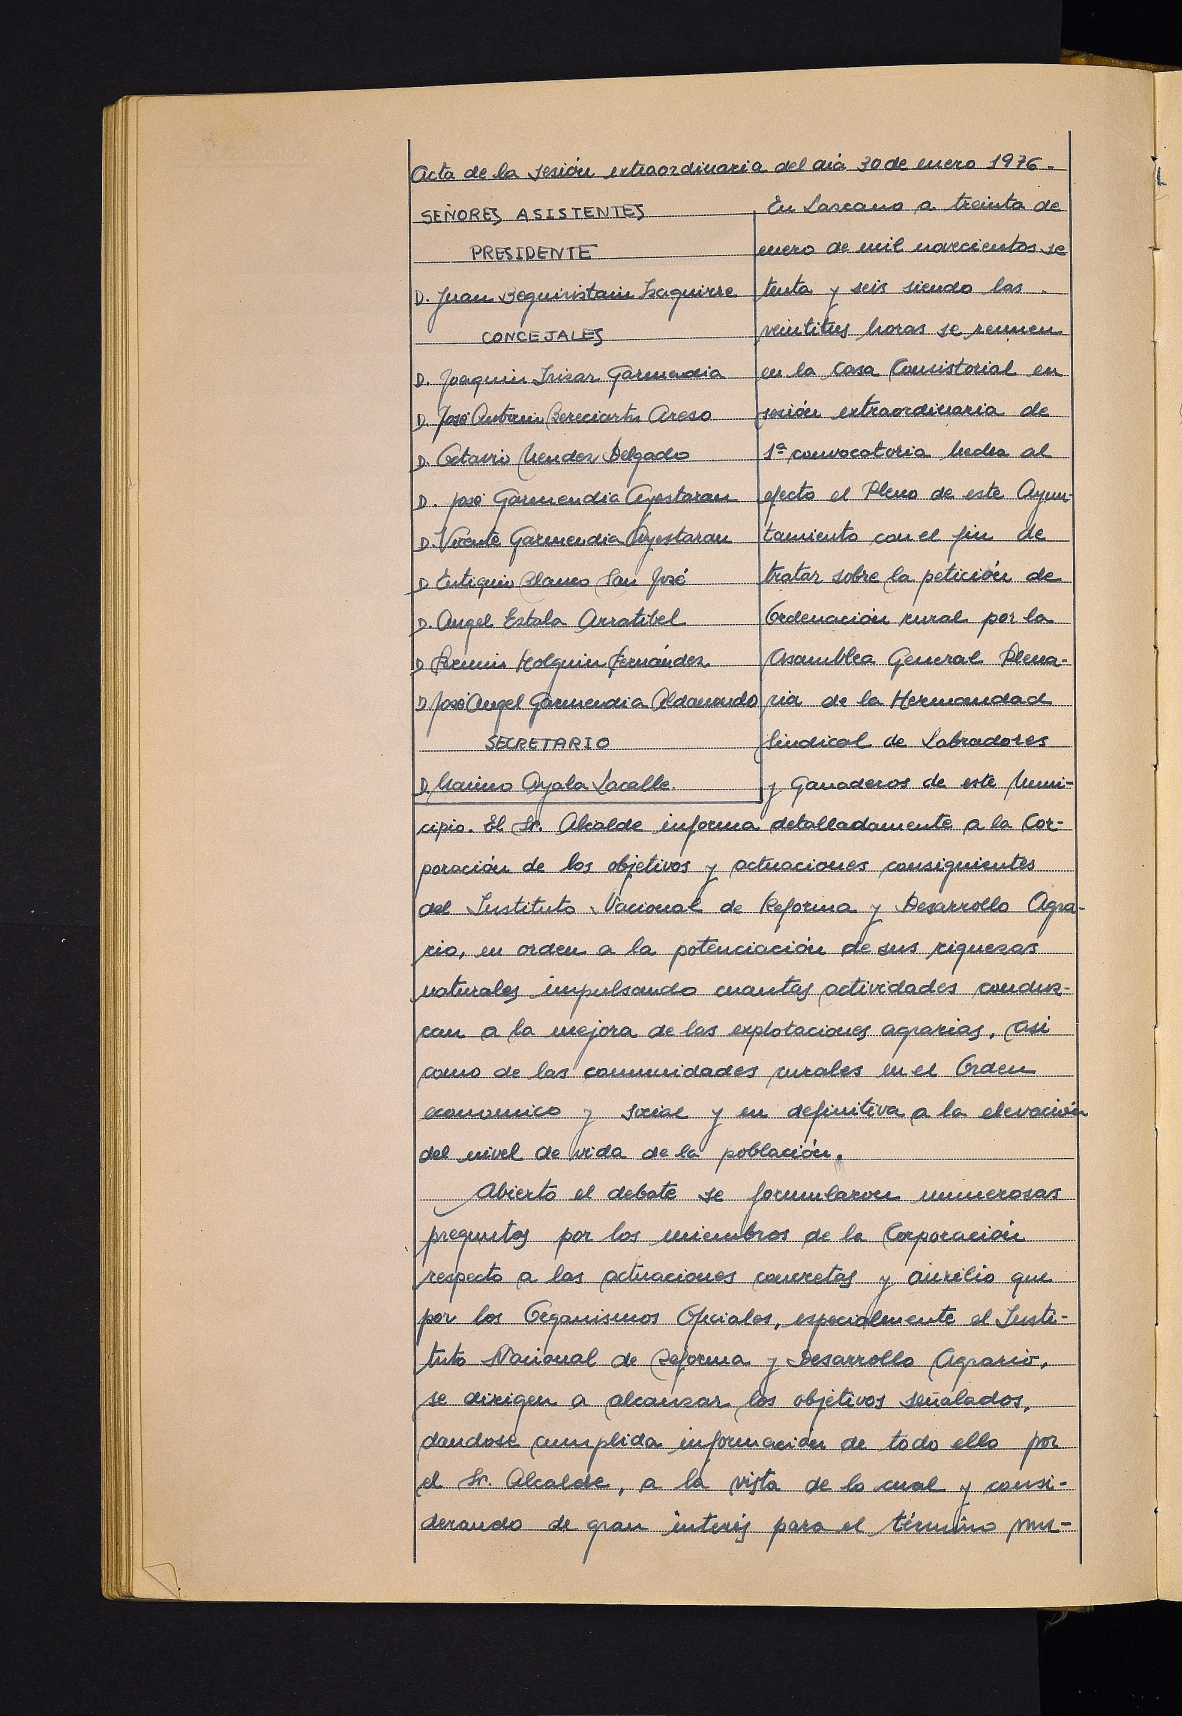 Acta de la sesión extraordinaria del dia 30 de enero 1976.
SEÑORES ASISTENTES
PRESIDENTE
D. Juan Beguiristain Izaguirre
CONCEJALES
D. Joaquin Irizar Garmendia
D. José Antonio Bereciartu Areso
D. Octavio Mendez Delgado
D. José Garmendia Ayestaran
D. Vicente Garmendia Ayestaran
D. Eutiquio Blanco San José
D. Angel Estala Arratibel
D. Fermin Holguin Fernández
D. José Angel Garmendia Aldanondo
SECRETARIO
D. Marino Ayala Lacalle.
En Lazcano a treinta de
enero de mil novecientos se
tenta y seis siendo las
veintitres horas se reunen
en la Casa Consistorial en
sesión extraordinaria de
1ª convocatoria hecha al
efecto el Pleno de este Ayun-
tamiento con el fin de
tratar sobre la petición de
Ordenación rural por la
Asamblea General Plena-
ria de la Hermandad
Sindical de Labradores
y Ganaderos de este Muni-
cipio. El Sr. Alcalde informa detalladamente a la Cor-
poración de los objetivos y actuaciones consiguientes
del Instituto Nacional de Reforma y Desarrollo Agra-
rio, en orden a la potenciación de sus riquezas
naturales impulsando cuantas actividades conduz-
can a la mejora de las explotaciones agrarias, asi
como de las comunidades rurales en el Orden
economico y social y en definitiva a la elevación
del nivel de vida de la población.
Abierto el debate se formularon numerosas
preguntas por los miembros de la Corporación
respecto a las actuaciones concretas y auxilio que
por los Organismos Oficiales, especialmente el Insti-
tuto Nacional de Reforma y Desarrollo Agrario,
se dirigen a alcanzar los objetivos señalados,
dandose cumplida información de todo ello por
el Sr. Alcalde, a la vista de lo cual y consi-
derando de gran interés para el término mu-